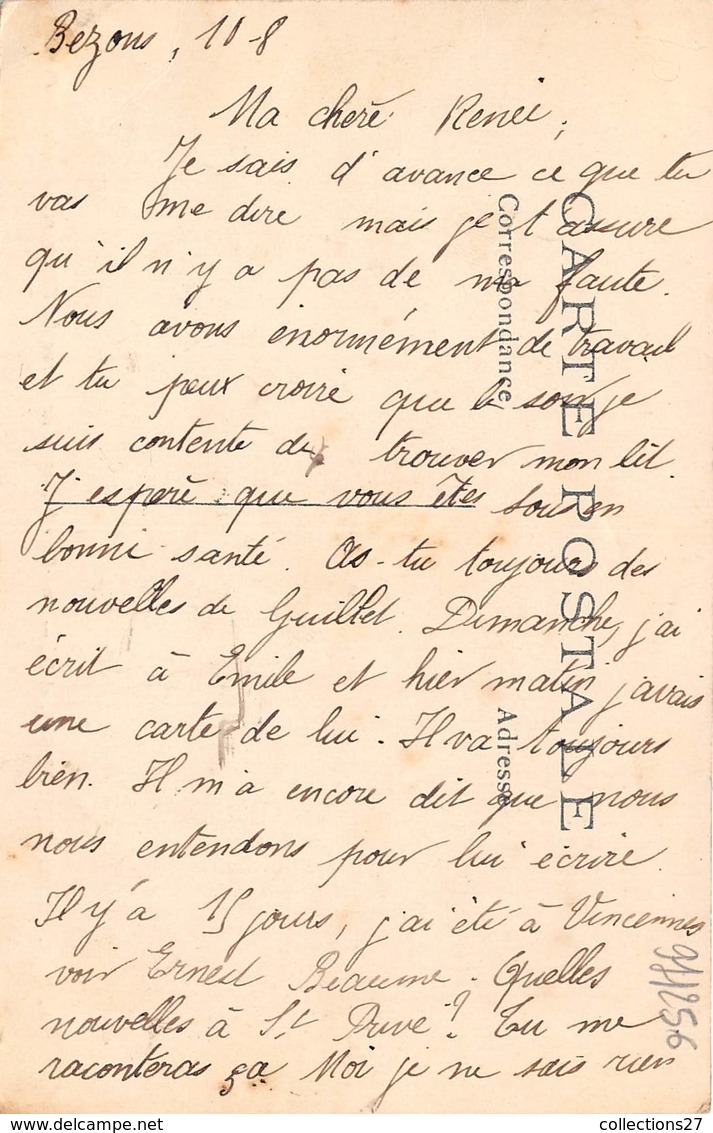 Bezons, 10-8
Ma cherè Renée,
Je sais d'avance ce que tu
vas me dire mais je t'assure
qu'il n'y a pas de ma faute.
Nous avons énormément de travail
et tu peux croire que le soir je
suis contente de trouver mon lit.
J'esperè que vous êtes tous en
bonne santé. As-tu toujours des
nouvelles de Guillet. Dimanche, j'ai
écrit à Emile et hier matin j'avais
une carte de lui. Il va toujours
bien. Il m'a encore dit que nous
nous entendons pour lui écrire.
Il y'a 15 jours, j'ai été à Vincennes
voir Ernest Beaume. Quelles
nouvelles à St Privé? Tu me
raconteras ça Moi je ne sais rien
CARTE POSTALE
Correspondance
Adresse
collections27